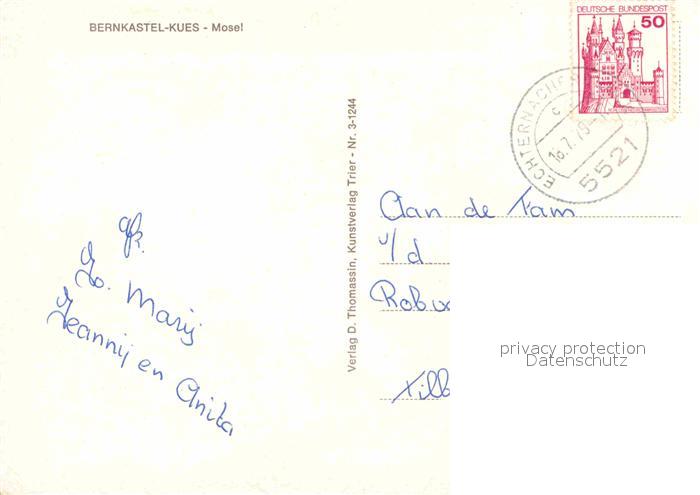 BERNKASTEL-KUES - Mosel
DEUTSCHE BUNDESPOST
50
ECHTERNACH
c
18.7.79
5521
Verlag D. Thomassin, Kunstverlag Trier - Nr. 3-1244
Aan de Fam
v/d
Rob
Tilb
privacy protection
Datenschutz
Jo. Marij
Jeannij en Anita